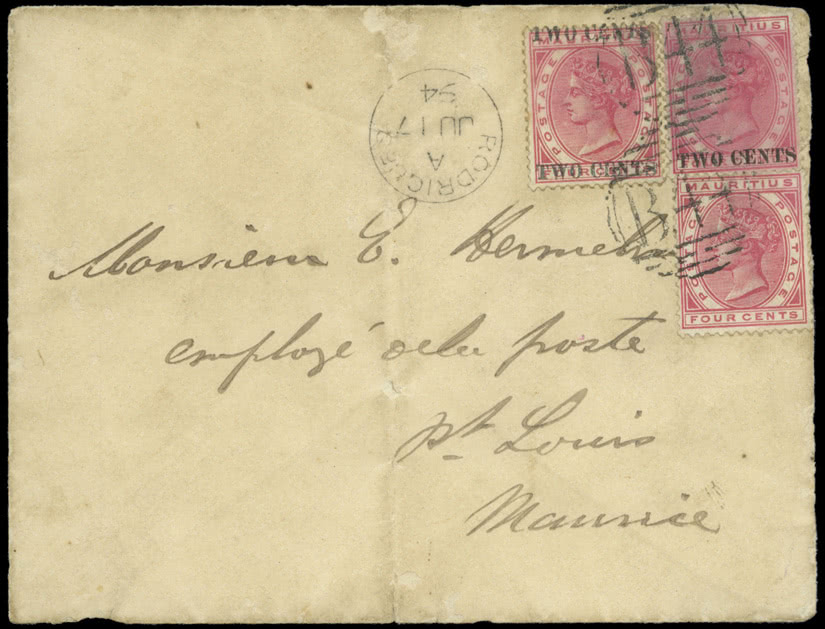 TWO CENTS
MAURITIUS
POSTAGE POSTAGE
TWO CENTS
B44
MAURITIUS
POSTAGE
TWO CENTS
B44
MAURITIUS
POSTAGE POSTAGE
FOUR CENTS
RODRIGUES
A
JU 17
94
Monsieur E.
employé de la poste
Pt Louis
Maurice